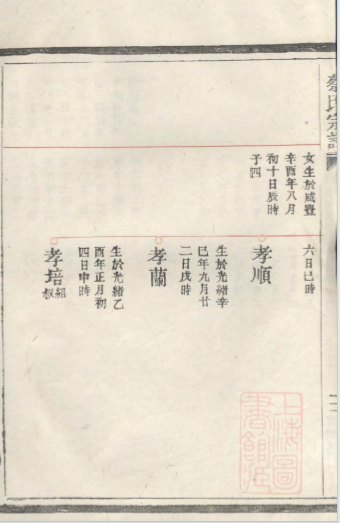 蔡氏宗譜
女生於咸豐
辛酉年八月
初十日辰時
子四
六日巳時
孝順
生於光緒辛
巳年九月廿
二日戌時
孝蘭
生於光緒乙
酉年正月初
四日申時
孝培紹叔
上海圖書館藏